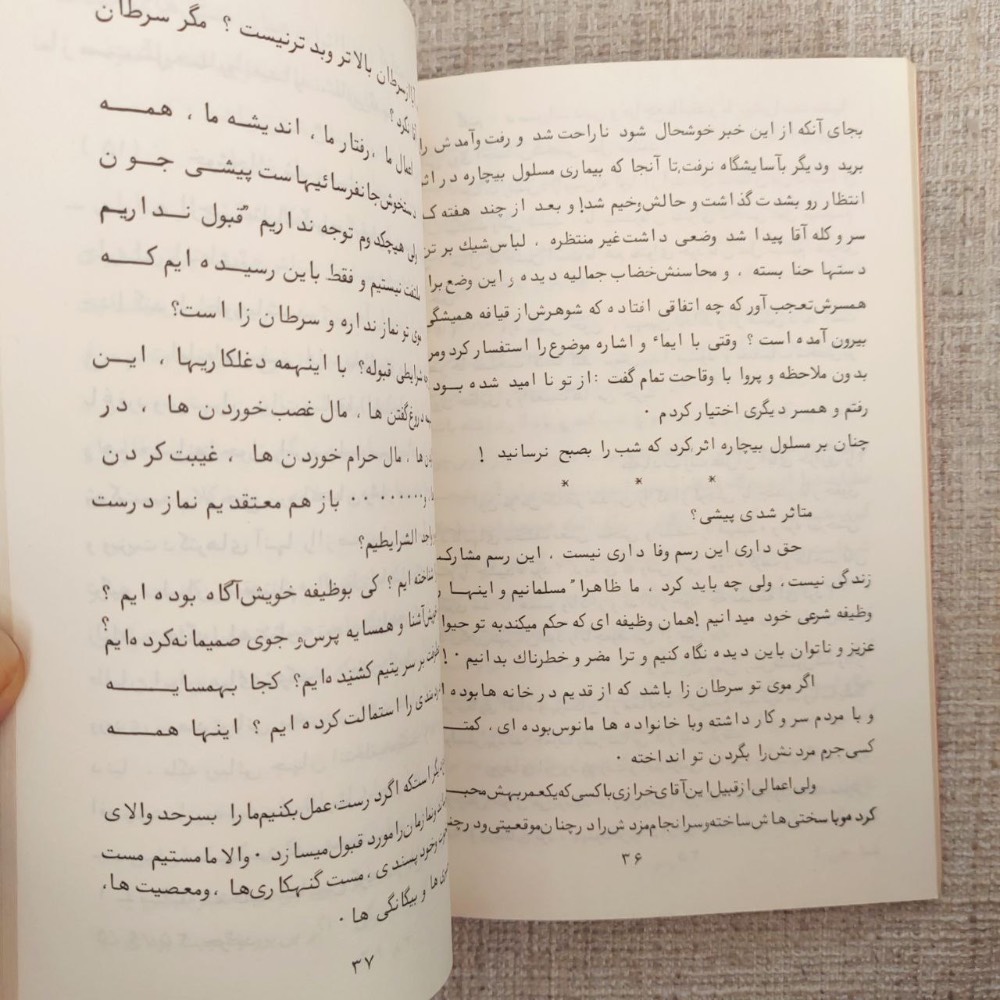 بجای آنکه از این خبر خوشحال شود ناراحت شد و رفت وآمدش را
برید ودیگر بآسایشگاه نرفت,تا آنجا که بیماری مسلول بیچاره در اثر
انتظار رو بشدت گذاشت و حالش وخیم شد! و بعد از چند هفته که
سر و کله آقا پیدا شد وضعی داشت غیر منتظره ، لباس شیک بر تن
دستها حنا بسته ، و محاسنش خضاب جمالیه دیده و این وضع برای
همسرش تعجب آور که چه اتفاقی افتاده که شوهرش از قیافه همیشگی
بیرون آمده است ؟ وقتی با ایماء و اشاره موضوع را استفسار کرد
بدون ملاحظه و پروا با وقاحت تمام گفت : از تو نا امید شده بودم
رفتم و همسر دیگری اختیار کردم .
چنان بر مسلول بیچاره اثر کرد که شب را بصبح نرسانید !
* * *
متاثر شدی پیشی؟
حق داری این رسم وفا داری نیست ، این رسم مشارکت
زندگی نیست، ولی چه باید کرد ، ما ظاهراً مسلمانیم و اینها را
وظیفه شرعی خود میدانیم !همان وظیفه ای که حکم میکندبه تو حیوان
عزیز و ناتوان باین دیده نگاه کنیم و ترا مضر و خطرناك بدانیم . !
اگر موی تو سرطان زا باشد که از قدیم در خانه ها بوده ا
و با مردم سر و کار داشته وبا خانواده ها مانوس بوده ای، کمتر
کسی جرم مردنش را بگردن تو انداخته .
ولی اعمالی از قبیل این آقای خرازی با کسی که یکعمر بهش محبت
کرد موبا سختی هاش ساخته وسرانجام مزدش را در چنان موقعیتی ودر چنان
۳۶
آیا از سرطان بالاتر وبد ترنیست ؟ مگر سرطان
نکرد ؟
اعمال ما ، رفتار ما ، اندیشه ما ، همه
دستخوش جانفرسائیهاست پیشی جون
ولی هیچکدوم توجه نداریم ً قبول نداریم
ملتفت نیستیم و فقط باین رسیده ایم که
موی تو نماز نداره و سرطان زا است؟
شرایطی قبوله؟ با اینهمه دغلکاریها ، این
همه دروغ گفتن ها ، مال غصب خوردن ها ، در
ها ، مال حرام خوردن ها ، غیبت کردن
و......... باز هم معتقدیم نماز درست
واجد الشرایطیم؟
شناخته ایم ؟ کی بوظیفه خویش آگاه بوده ایم ؟
آشنا و همسایه پرس و جوی صمیمانه کرده ایم؟
بر سر یتیم کشیده ایم؟ کجا بهمسایه
را استمالت کرده ایم ؟ اینها همه
استکه اگر درست عمل بکنیم ما را بسرحد والای
ونمازمان را مورد قبول میسازد . والا ما مستیم مست
وخود پسندی ، مست گنهکاری ها ، ومعصیت ها،
ها و بیگانگی ها .
۳۷